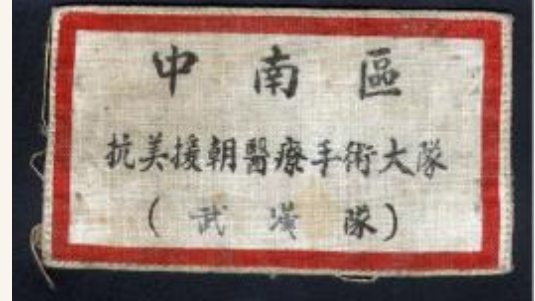 中南區
抗美援朝醫療手術大隊
(武漢隊)